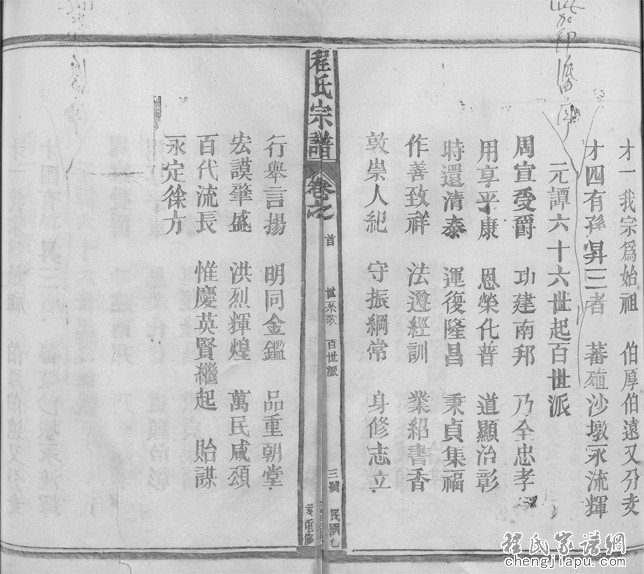 才一我宗爲始祖 伯厚伯遠又分支
才四有孫昇三者 蕃殖沙墩永流輝
元譚六十六世起百世派
周宣受爵 功建南邦 乃全忠孝
用享平康 恩榮化普 道顯治彰
時還清泰 運復隆昌 秉貞集福
作善致祥 法遵經訓 業紹書香
敦崇人紀 守振綱常 身修志立
程氏宗譜 卷之首 世系歌 百世派 三號
民國
重修
行舉言揚 明同金鑑 品重朝堂
宏謨肇盛 洪烈輝煌 萬民咸頌
百代流長 惟慶英賢繼起 貽謀
永定徐方
程氏家譜網
chengjiapu.com